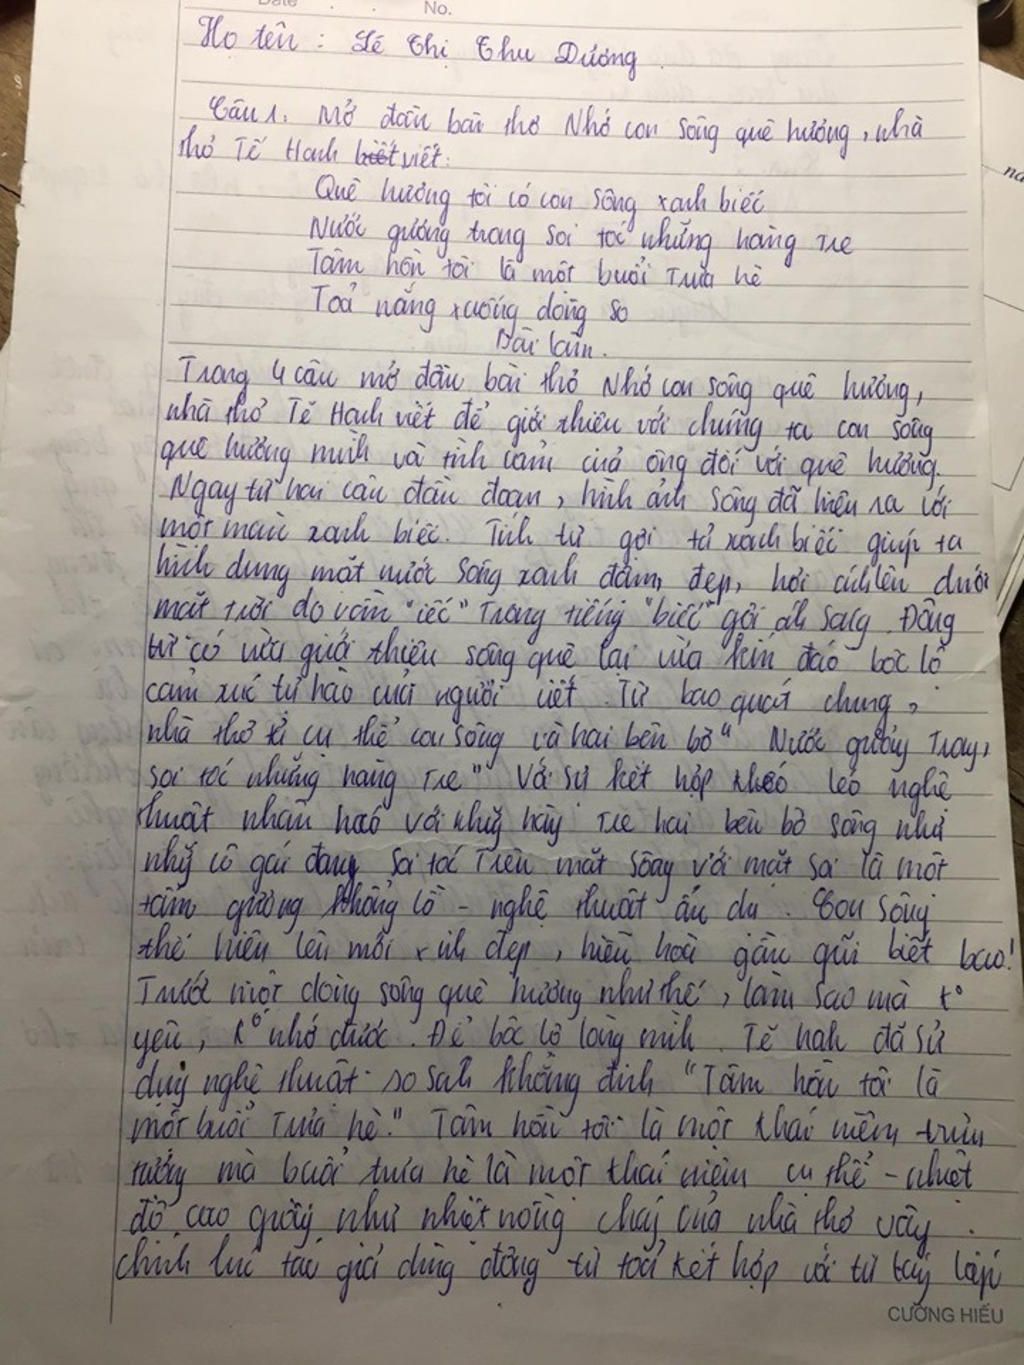 Date No.
Họ tên : Lê Thị Thu Dương
Câu 1. Mở đầu bài thơ Nhớ con sông quê hương, nhà
thơ Tế Hanh biết viết:
Quê hương tôi có con sông xanh biếc
Nước gương trong soi tóc những hàng tre
Tâm hồn tôi là một buổi trưa hè
Toả nắng xuống dòng so
Bài làm.
Trong 4 câu mở đầu bài thơ Nhớ con sông quê hương,
nhà thơ Tế Hanh viết để giới thiệu với chúng ta con sông
quê hương mình và tình cảm của ông đối với quê hương.
Ngay từ hai câu đầu đoạn, hình ảnh sông đã hiện ra với
một màu xanh biếc. Tính từ gợi tả xanh biếc giúp ta
hình dung mặt nước sông xanh đậm, đẹp, hơi ánh lên dưới
mặt trời do vần "iếc" trong tiếng "biếc" gợi ánh sáng. Động
từ có vừa giới thiệu sông quê lại vừa kín đáo bộc lộ
cảm xúc tự hào của người viết. Từ bao quát chung,
nhà thơ tả cụ thể con sông và hai bên bờ " Nước gương trong,
soi tóc những hàng tre" Với sự kết hợp khéo léo nghệ
thuật nhân hoá với những hàng tre hai bên bờ sông như
những cô gái đang soi tóc trên mặt sông với mặt soi là một
tấm gương khổng lồ - nghệ thuật ẩn dụ. Con sông
thế hiện lên mới xinh đẹp, hiền hoà gần gũi biết bao!
Trước một dòng sông quê hương như thế, làm sao mà k°
yêu, k° nhớ được. Để bộc lộ lòng mình Tế hanh đã sử
dụng nghệ thuật so sánh khẳng định "Tâm hồn tôi là
một buổi trưa hè." Tâm hồn tôi là một khái niệm trừu
tượng mà buổi trưa hè là một khái niệm cụ thể - nhiệt
độ cao giống như nhiệt nồng cháy của nhà thơ vậy.
chính lúc tác giả dùng động từ toả kết hợp với từ láy
CƯỜNG HIẾU